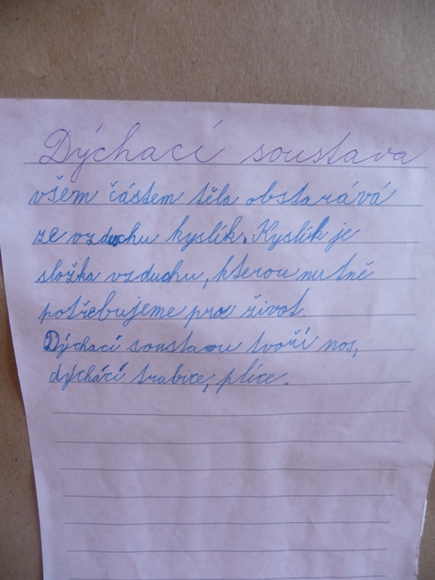 Dýchací soustava
všem částem těla obstarává
ze vzduchu kyslík. Kyslík je
složka vzduchu, kterou nutně
potřebujeme pro život.
Dýchací soustavu tvoří nos,
dýchácí trubice, plíce.